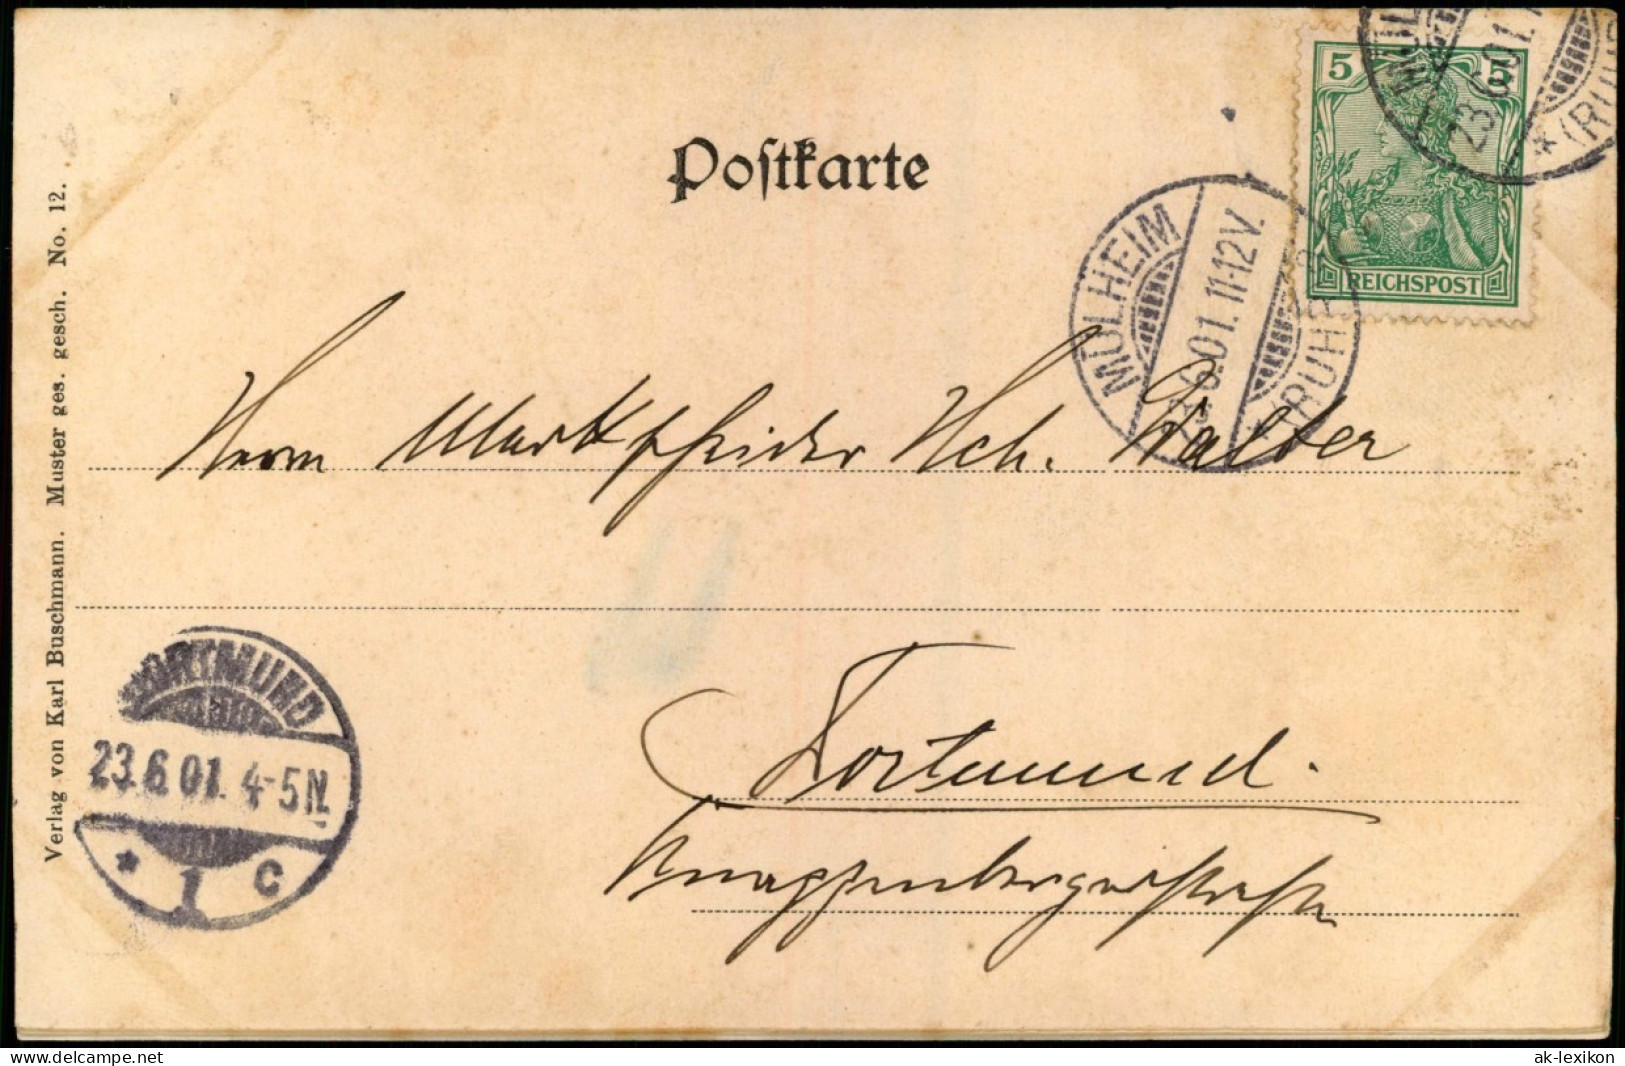 Postkarte
5 5
REICHSPOST
MÜLHEIM
23.6.01.
* (RUHR)
MÜLHEIM
23.6.01. 11-12V.
* (RUHR)
Herrn Markscheider Hch. Walter
Dortmund.
Knappenbergerstraße
DORTMUND
23.6.01. 4-5N.
* 1 c
Verlag von Karl Buschmann. Muster ges. gesch. No. 12.
delcampe.net
ak-lexikon